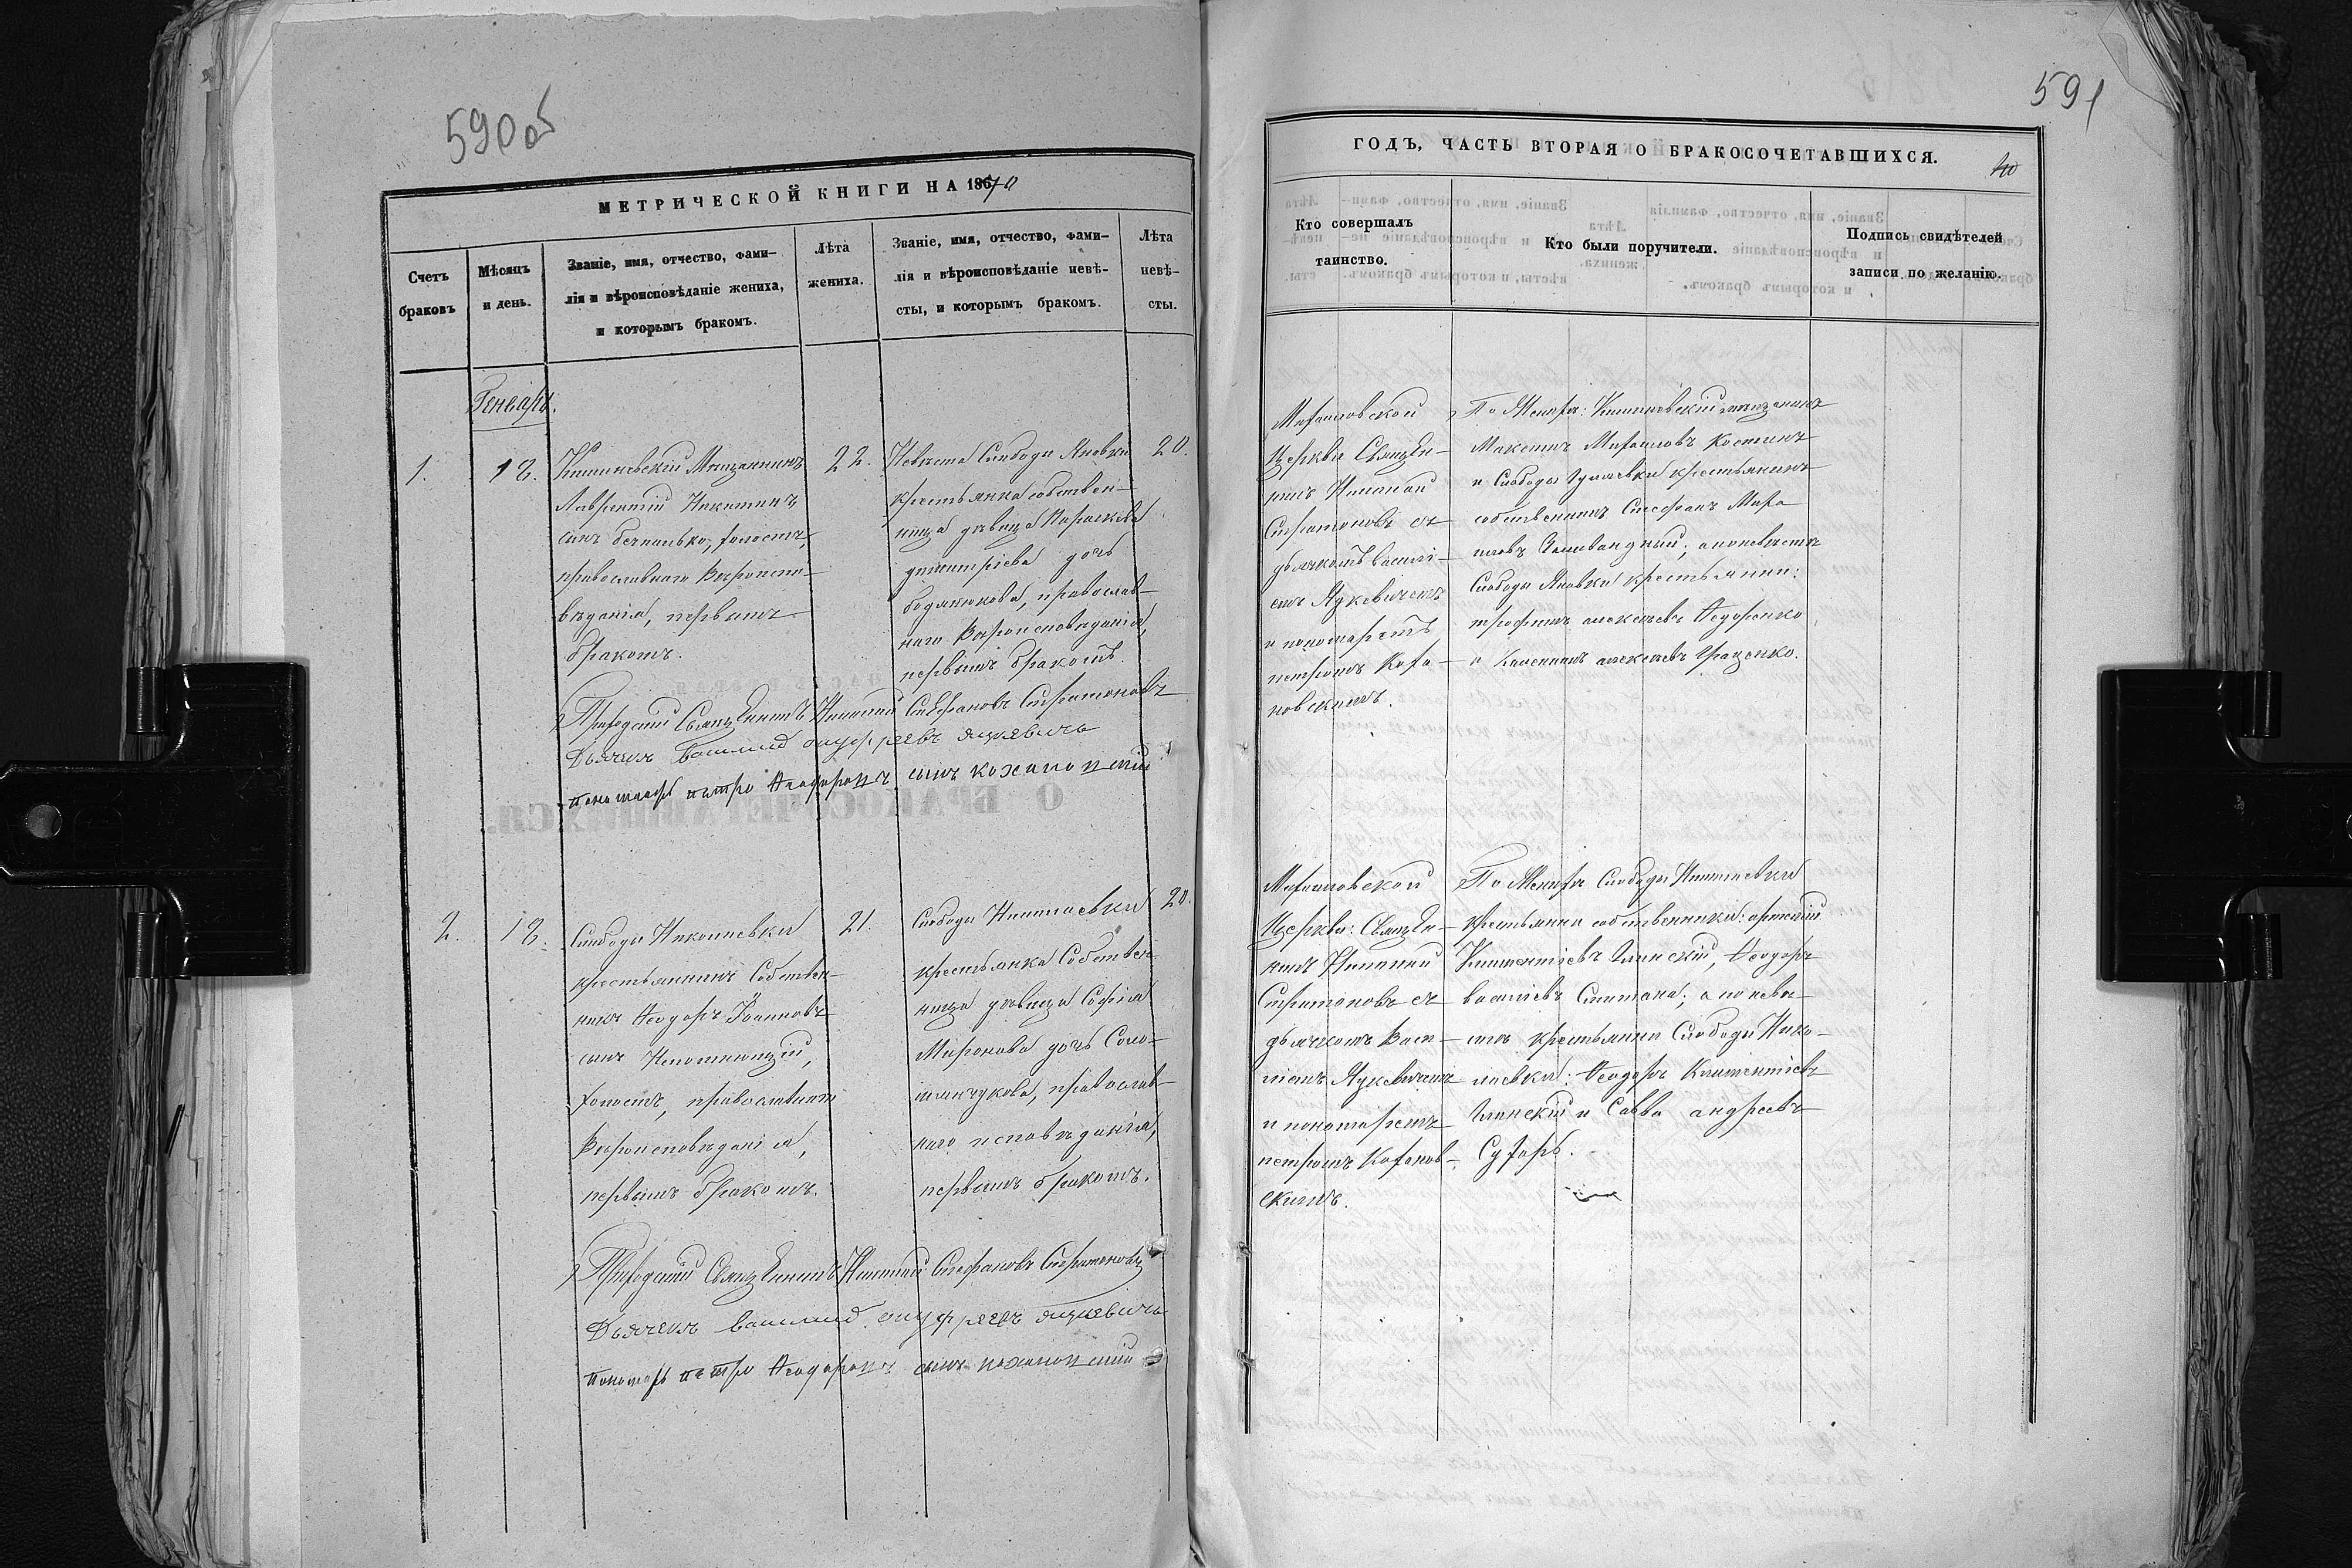 590 об
МЕТРИЧЕСКОЙ КНИГИ НА 1870
Счетъ
браковъ
Мѣсяцъ
и день.
Званіе, имя, отчество, фами-
лія и вѣроисповѣданіе жениха,
и которымъ бракомъ.
Лѣта
жениха.
Званіе, имя, отчество, фами-
лія и вѣроисповѣданіе невѣ-
сты, и которымъ бракомъ.
Лѣта
невѣ-
сты.
Генварь.
1.
18.
Кишиневскій Мѣщанинъ
Лаврентій Никитинъ
сынъ холостъ,
православнаго Вѣроиспо-
вѣданія, первымъ
бракомъ.
22.
Невѣста Слободы Яновки
крестьянка собствен-
ница дѣвица Параскева
димитріева дочь
православ-
наго Вѣроисповѣданія,
первымъ бракомъ.
20.
Приходскій Священникъ Николай Стефановъ Стратоновъ
Дьячекъ Василій Онуфріевъ Яцкевичъ
пономарь петро Ѳеодоровъ сынъ кохановскій
2.
18.
Слободы Николаевки
крестьянинъ Собствен-
никъ Ѳеодоръ Іоанновъ
сынъ
холостъ, православнаго
Вѣроисповѣданія,
первымъ бракомъ.
21.
Слободы Николаевки
крестьянка Собствен-
ница дѣвица Софія
Миронова дочь Соло-
православ-
наго исповѣданія,
первымъ бракомъ.
20.
Приходскій Священникъ Николай Стефановъ Стратоновъ
Дьячекъ Василій Онуфріевъ Яцкевичъ
пономарь петро Ѳеодоровъ сынъ кохановскій
591
ГОДЪ, ЧАСТЬ ВТОРАЯ О БРАКОСОЧЕТАВШИХСЯ.
Кто совершалъ
таинство.
Кто были поручители.
Подпись свидѣтелей
записи по желанію.
Михайловской
Церкви Священ-
никъ Николай
Стратоновъ съ
дьячкомъ Василі-
емъ Яцкевичемъ
и пономаремъ
петромъ Коха-
новскимъ.
По Женихѣ: Кишиневскій мѣщанинъ
Михаиловъ Костинъ
и Слободы крестьянинъ
собственникъ Стефанъ Миха
иловъ а по невѣстѣ
Слободы Яновки крестьянин:
трофимъ алексѣевъ Ѳедоренко
и алексѣевъ Гращенко.
Михайловской
Церкви: Священ-
никъ Николай
Стратоновъ съ
дьячкомъ Васи-
ліемъ Яцкевичемъ
и пономаремъ
петромъ Коханов-
скимъ.
По Женихѣ Слободы Николаевки
крестьяни собственники: артемій
Климентіевъ Глинскій, Ѳеодоръ
василіевъ Сметана; а по невѣ-
стѣ крестьяни Слободы Нико-
лаевки: Ѳеодоръ Климентіевъ
Глинскій и Савва андреевъ
Сухарь.